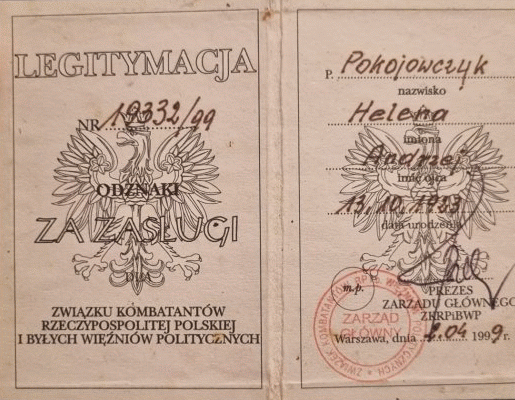 LEGITYMACJA
NR 19332/99
ODZNAKI
ZA ZASŁUGI
DLA
ZWIĄZKU KOMBATANTÓW
RZECZYPOSPOLITEJ POLSKIEJ
I BYŁYCH WIĘŹNIÓW POLITYCZNYCH
P. Pokojowczyk
nazwisko
Helena
imiona
Andrzej
imię ojca
13.10.1933
data urodzenia
m.p.
PREZES
ZARZĄDU GŁÓWNEGO
ZKRPiBWP
ZARZĄD
GŁÓWNY
Warszawa, dnia 2.04 1999 r.